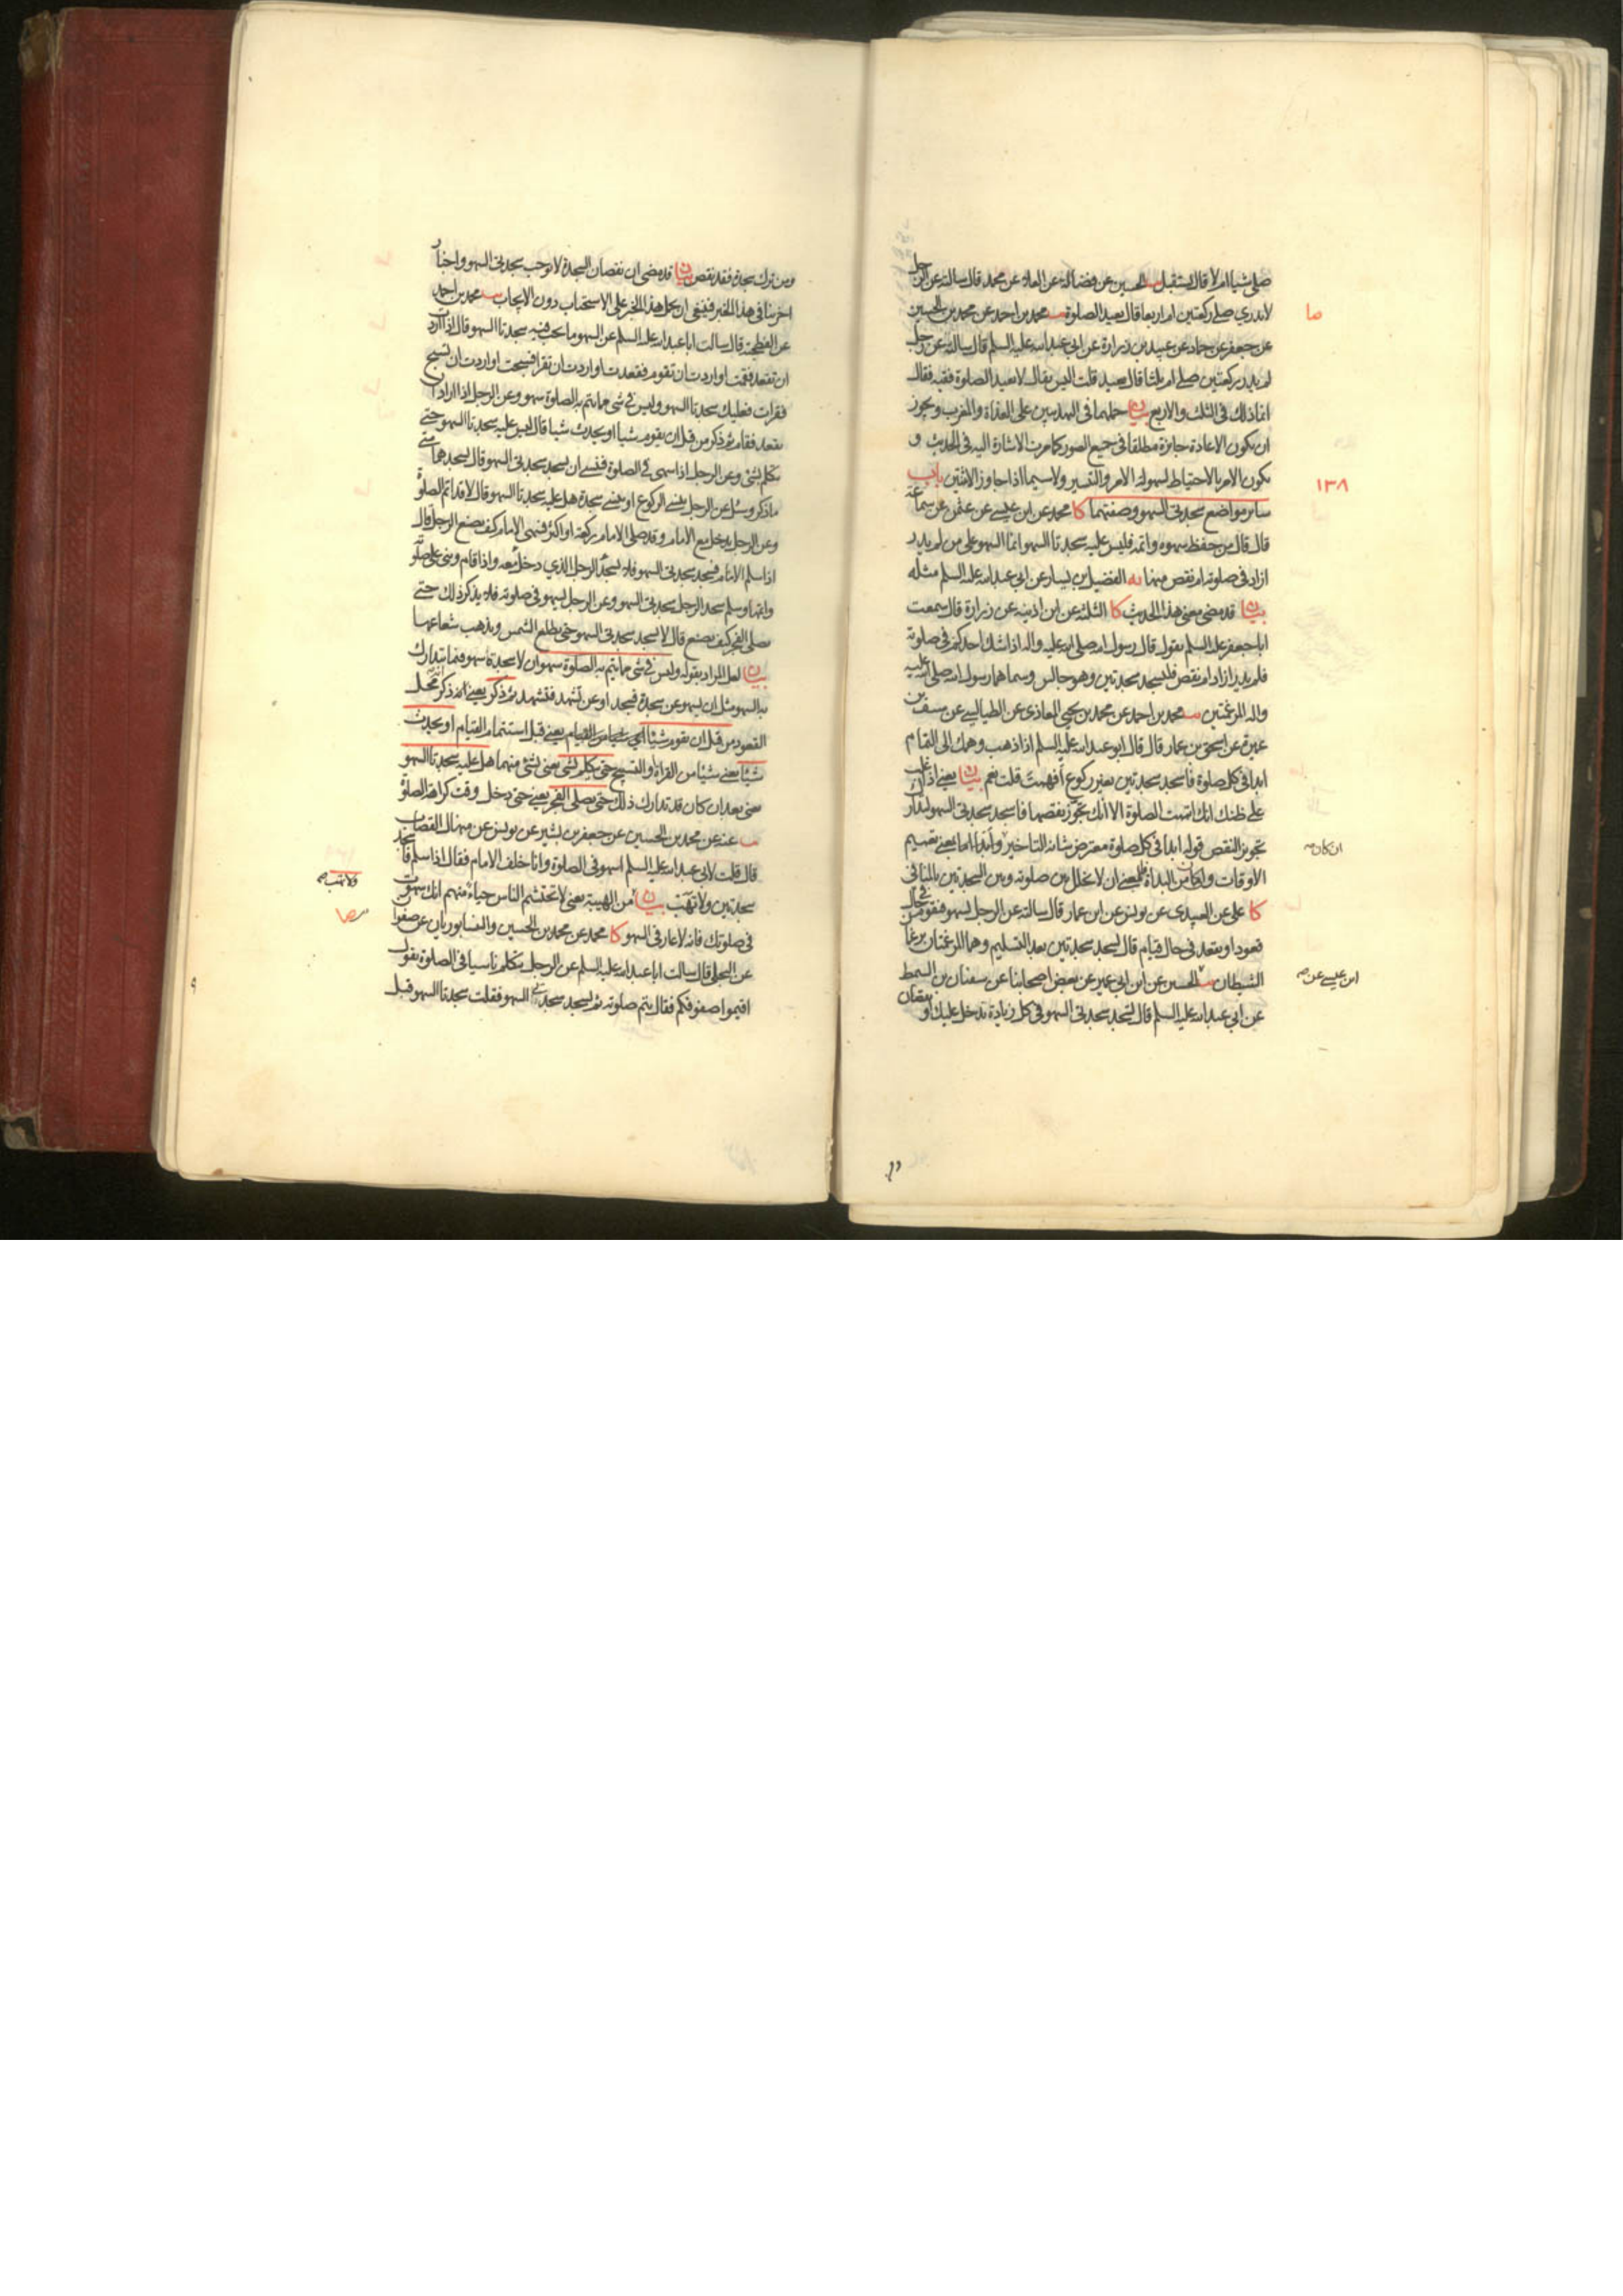 صلى شيئا ام لا قال يستقبل يب الحسين عن فضالة عن العلا عن محمد قال سالته عن الرجل
لا يدري صلى ركعتين ام اربعا قال يعيد الصلوة يب محمد بن احمد عن محمد بن الحسين
عن جعفر عن حماد عن عبيد بن زرارة عن ابي عبد الله عليه السلم قال سالته عن رجل
لم يدر ركعتين صلى ام ثلثا قال يعيد قلت اليس يقال لا يعيد الصلوة فقيه فقال
انما ذلك في الثلث والاربع بيان حملهما في التهذيبين على الغداة والمغرب ويجوز
ان يكون الاعادة جايزة مطلقا في جميع الصور كما مرت الاشارة اليه في الحديث و
يكون الامر بالاحتياط لسهولة الامر والتيسير ولا سيما اذا جاوز الاثنتين باب
ساير مواضع سجدتي السهو وصفتهما كا محمد عن ابن عيسى عن عثمن عن سماعة
قال قال من حفظ سهوه واتمه فليس عليه سجدتا السهو انما السهو على من لم يدر
ازاد في صلوته ام نقص منها يه الفضيل بن يسار عن ابي عبد الله عليه السلم مثله
بيان قد مضى معنى هذا الحديث كا الثلثة عن ابن اذينة عن زرارة قال سمعت
ابا جعفر عليه السلم يقول قال رسول الله صلى الله عليه واله اذا شك احدكم في صلوته
فلم يدر ازاد ام نقص فليسجد سجدتين وهو جالس وسماهما رسول الله صلى الله عليه
واله المرغمتين يب محمد بن احمد عن محمد بن يحيى المعاذي عن الطيالسي عن سيف بن
عميرة عن اسحق بن عمار قال قال ابو عبد الله عليه السلم اذا ذهب وهمك الى التمام
ابدا في كل صلوة فاسجد سجدتين بغير ركوع أفهمت قلت نعم بيان يعني اذا غلب
على ظنك انك اتممت الصلوة الا انك تجوز نقصها فاسجد سجدتي السهو لتدارك
تجويز النقص قوله ابدا في كل صلوة معترض شانه التاخير و
كا علي عن العبيدي عن يونس عن ابن عمار قال سالته عن الرجل يسهو فيقوم في حال
قعود او يقعد في حال قيام قال يسجد سجدتين بعد التسليم وهما المرغمتان ترغمان
الشيطان يب الحسين عن ابن ابي عمير عن بعض اصحابنا عن سفيان بن السمط
عن ابي عبد الله عليه السلم قال تسجد سجدتي السهو في كل زيادة تدخل عليك او نقصان
صا
١٣٨
ان كان صح
ابن عيسى عن صح
ومن ترك سجدة فقد نقص بيان قد مضى ان نقصان السجدة لا توجب سجدتي السهو واخبار
اخر منافي هذا الخبر فينبغي ان يحمل هذا الخبر على الاستحباب دون الايجاب يب محمد بن احمد
عن الفطحية قال سالت ابا عبد الله عليه السلم عن السهو ما يجب فيه سجدتا السهو قال اذا اردت
ان تقعد فقمت او اردت ان تقوم فقعدت او اردت ان تقرا فسبحت او اردت ان تسبح
فقرات فعليك سجدتا السهو وليس في شي مما يتم به الصلوة سهو وعن الرجل اذا اراد ان
يقعد فقام ثم ذكر من قبل ان يقوم شيئا او يحدث شيئا قال ليس عليه سجدتا السهو حتى
يتكلم بشي وعن الرجل اذا سهى في الصلوة فنسى ان يسجد سجدتي السهو قال يسجدهما متى
ما ذكر وسئل عن الرجل ينسى الركوع او ينسى سجدة هل عليه سجدتا السهو قال لا قد اتم الصلوة
وعن الرجل يدخل مع الامام وقد صلى الامام ركعة او اكثر فسهى الامام كيف يصنع الرجل قال
اذا سلم الامام فسجد سجدتي السهو فلا يسجد الرجل الذي دخل معه واذا قام وبنى على صلوته
واتمها وسلم سجد الرجل سجدتي السهو وعن الرجل يسهو في صلوته فلا يذكر ذلك حتى
يصلي الفجر كيف يصنع قال لا يسجد سجدتي السهو حتى يطلع الشمس ويذهب شعاعها
بيان لعل المراد بقوله وليس في شي مما يتم به الصلوة سهو ان لا سجدة سهو فيما يتدارك
به السهو مثل ان يسهو عن سجدة فيسجد او عن تشهد فتشهد ثم ذكر يعني انه ذكر محل
القعود من قبل ان يقوم شيئا اي شيئا من القيام يعني قبل استتمام القيام او يحدث
شيئا يعني شيئا من القراءة والتسبيح حتى يتكلم بشي يعني بشي منهما هل عليه سجدتا السهو
يعني بعد ان كان قد تدارك ذلك حتى يصلي الفجر يعني حتى دخل وقت كراهة الصلوة
يب عنه عن محمد بن الحسين عن جعفر بن بشير عن يونس عن منهال القصاب
قال قلت لابي عبد الله عليه السلم اسهو في الصلوة وانا خلف الامام فقال اذا سلم فاسجد
سجدتين ولا تهب بيان من الهيبة يعني لا تحتشم الناس حياء منهم انك سهوت
في صلوتك فانه لا عار في السهو كا محمد عن محمد بن الحسين والنيسابوريان عن صفوان
عن البجلي قال سالت ابا عبد الله عليه السلم عن الرجل يتكلم ناسيا في الصلوة يقول
اقيموا صفوفكم فقال يتم صلوته ثم يسجد سجدتي السهو فقلت سجدتا السهو قبل
ولا تهب صح